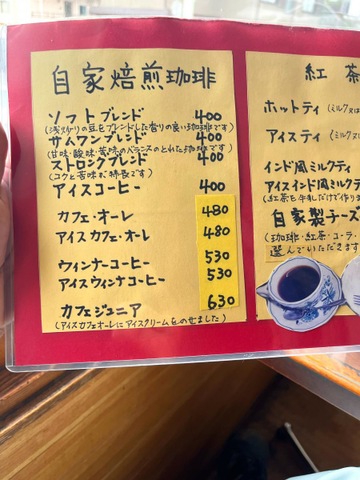 自家焙煎珈琲
ソフトブレンド 400
(浅炒りの豆をブレンドした香りの良い珈琲です)
サムワンブレンド 400
(甘味・酸味・苦味のバランスのとれた珈琲です)
ストロングブレンド 400
(コクと苦味が特長です)
アイスコーヒー 400
カフェ・オーレ 480
アイスカフェ・オーレ 480
ウィンナーコーヒー 530
アイスウィンナコーヒー 530
カフェジュニア 630
(アイスカフェオーレにアイスクリームをのせました)
紅茶
ホットティ (ミルク又は
アイスティ (ミルク又
インド風ミルクティ
アイスインド風ミルクティ
(紅茶を牛乳だけで作りま
自家製チーズ
(珈琲・紅茶・コーラ・
選んでいただきます